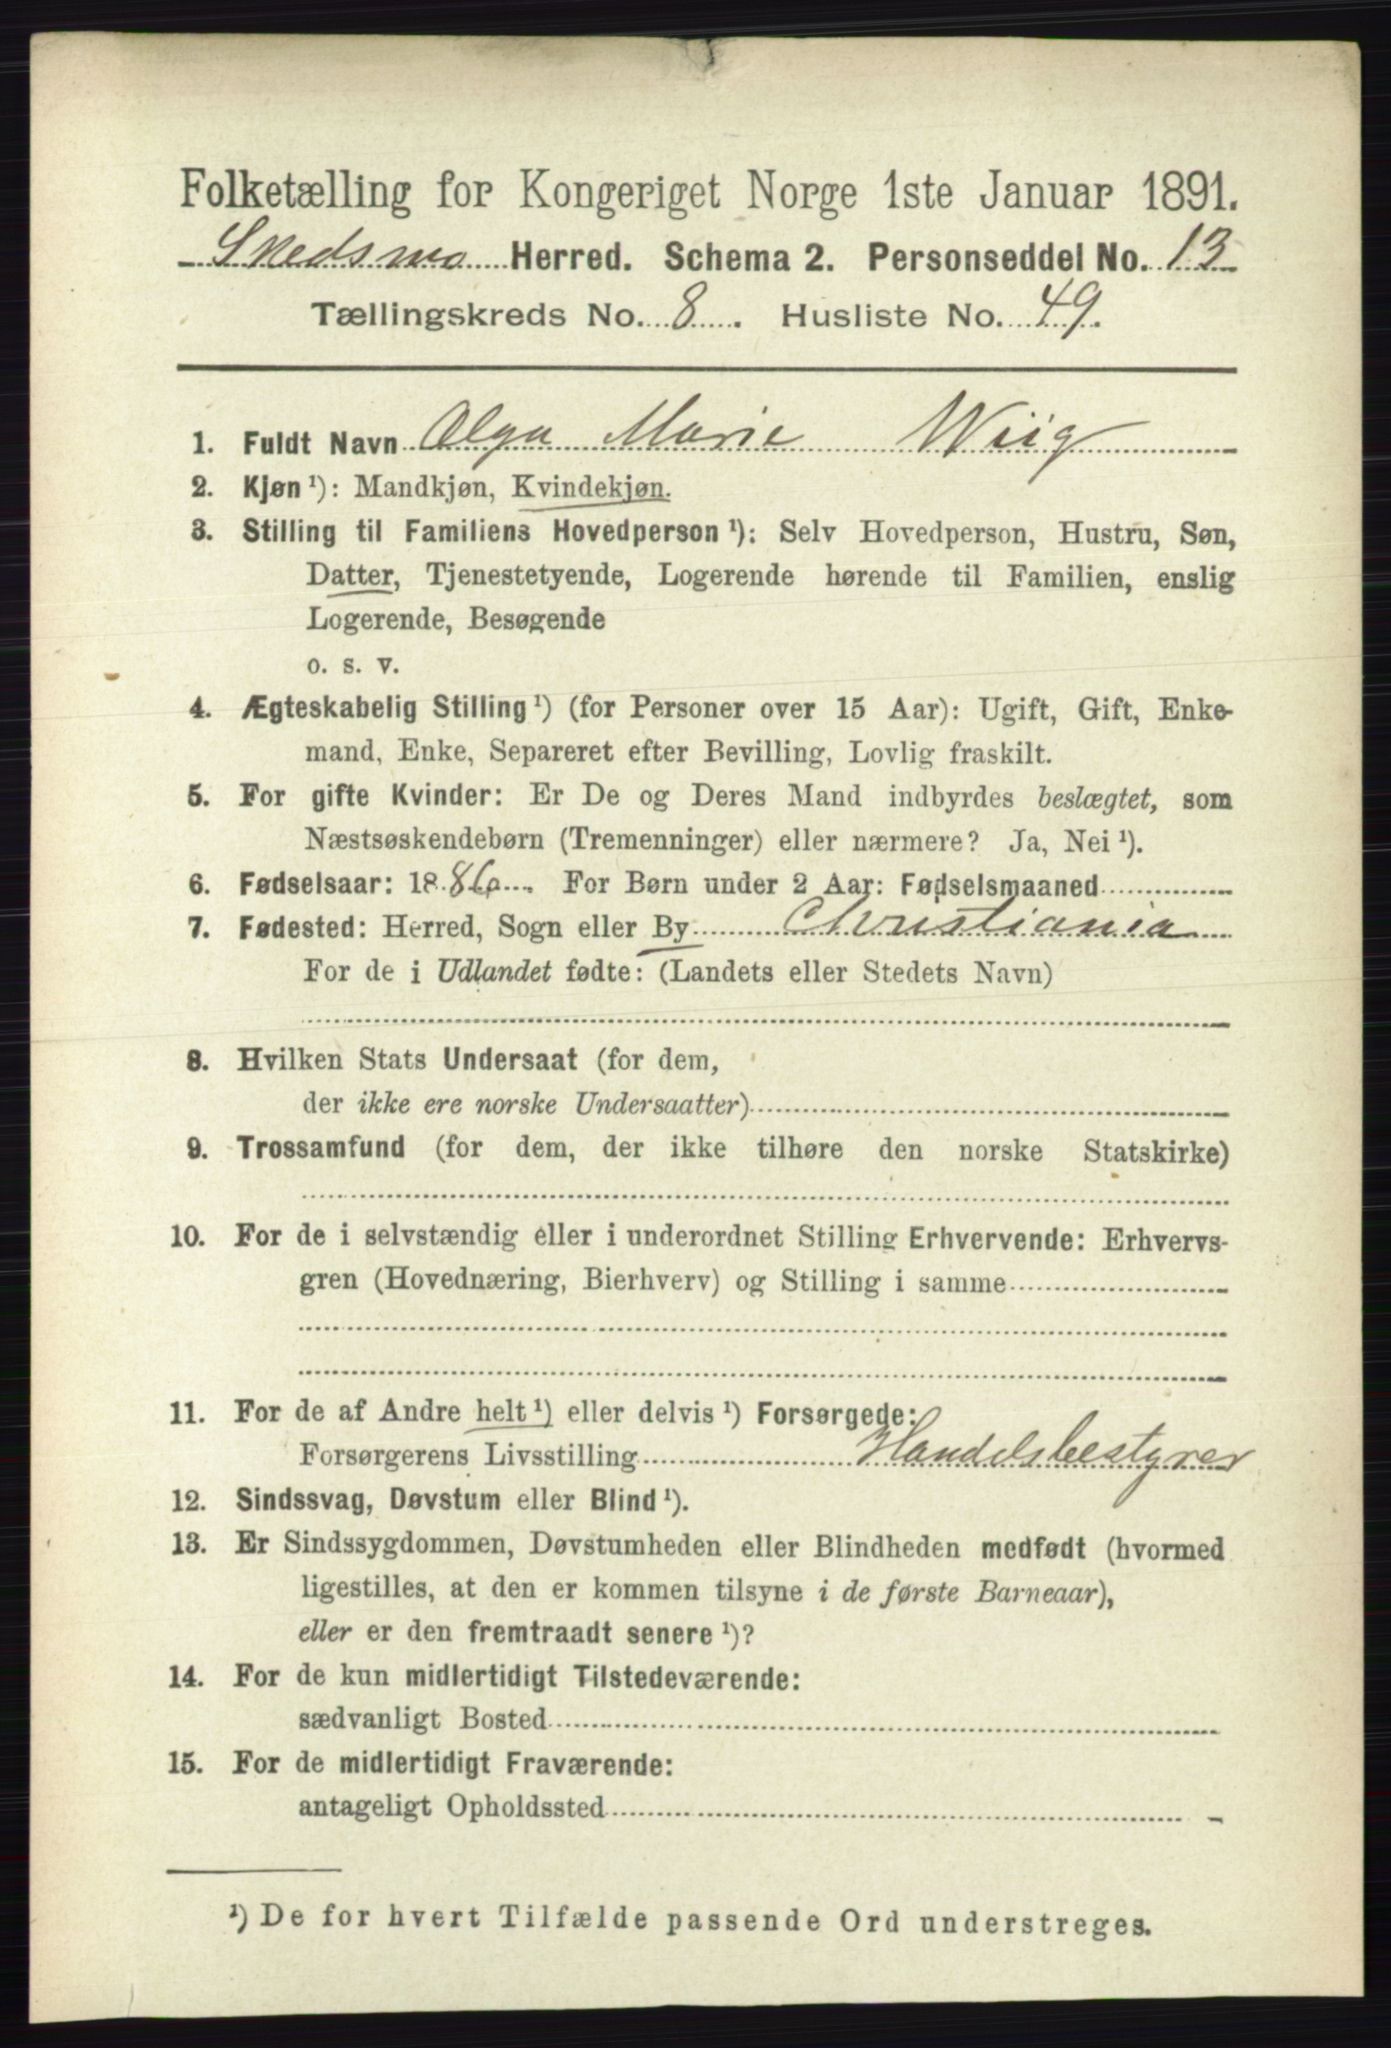 Folketælling for Kongeriget Norge 1ste Januar 1891.
Skedsmo Herred. Schema 2. Personseddel No. 13
Tællingskreds No. 8. Husliste No. 49.
1. Fuldt Navn Olga Marie Wiig
2. Kjøn ¹): Mandkjøn, Kvindekjøn.
3. Stilling til Familiens Hovedperson ¹): Selv Hovedperson, Hustru, Søn,
Datter, Tjenestetyende, Logerende hørende til Familien, enslig
Logerende, Besøgende
o. s. v.
4. Ægteskabelig Stilling ¹) (for Personer over 15 Aar): Ugift, Gift, Enke-
mand, Enke, Separeret efter Bevilling, Lovlig fraskilt.
5. For gifte Kvinder: Er De og Deres Mand indbyrdes beslægtet, som
Næstsøskendebørn (Tremenninger) eller nærmere? Ja, Nei ¹).
6. Fødselsaar: 1886. For Børn under 2 Aar: Fødselsmaaned
7. Fødested: Herred, Sogn eller By Christiania
For de i Udlandet fødte: (Landets eller Stedets Navn)
8. Hvilken Stats Undersaat (for dem,
der ikke ere norske Undersaatter)
9. Trossamfund (for dem, der ikke tilhøre den norske Statskirke)
10. For de i selvstændig eller i underordnet Stilling Erhvervende: Erhvervs-
gren (Hovednæring, Bierhverv) og Stilling i samme
11. For de af Andre helt ¹) eller delvis ¹) Forsørgede:
Forsørgerens Livsstilling Handelsbestyrer
12. Sindssvag, Døvstum eller Blind ¹).
13. Er Sindssygdommen, Døvstumheden eller Blindheden medfødt (hvormed
ligestilles, at den er kommen tilsyne i de første Barneaar),
eller er den fremtraadt senere ¹)?
14. For de kun midlertidigt Tilstedeværende:
sædvanligt Bosted
15. For de midlertidigt Fraværende:
antageligt Opholdssted
¹) De for hvert Tilfælde passende Ord understreges.